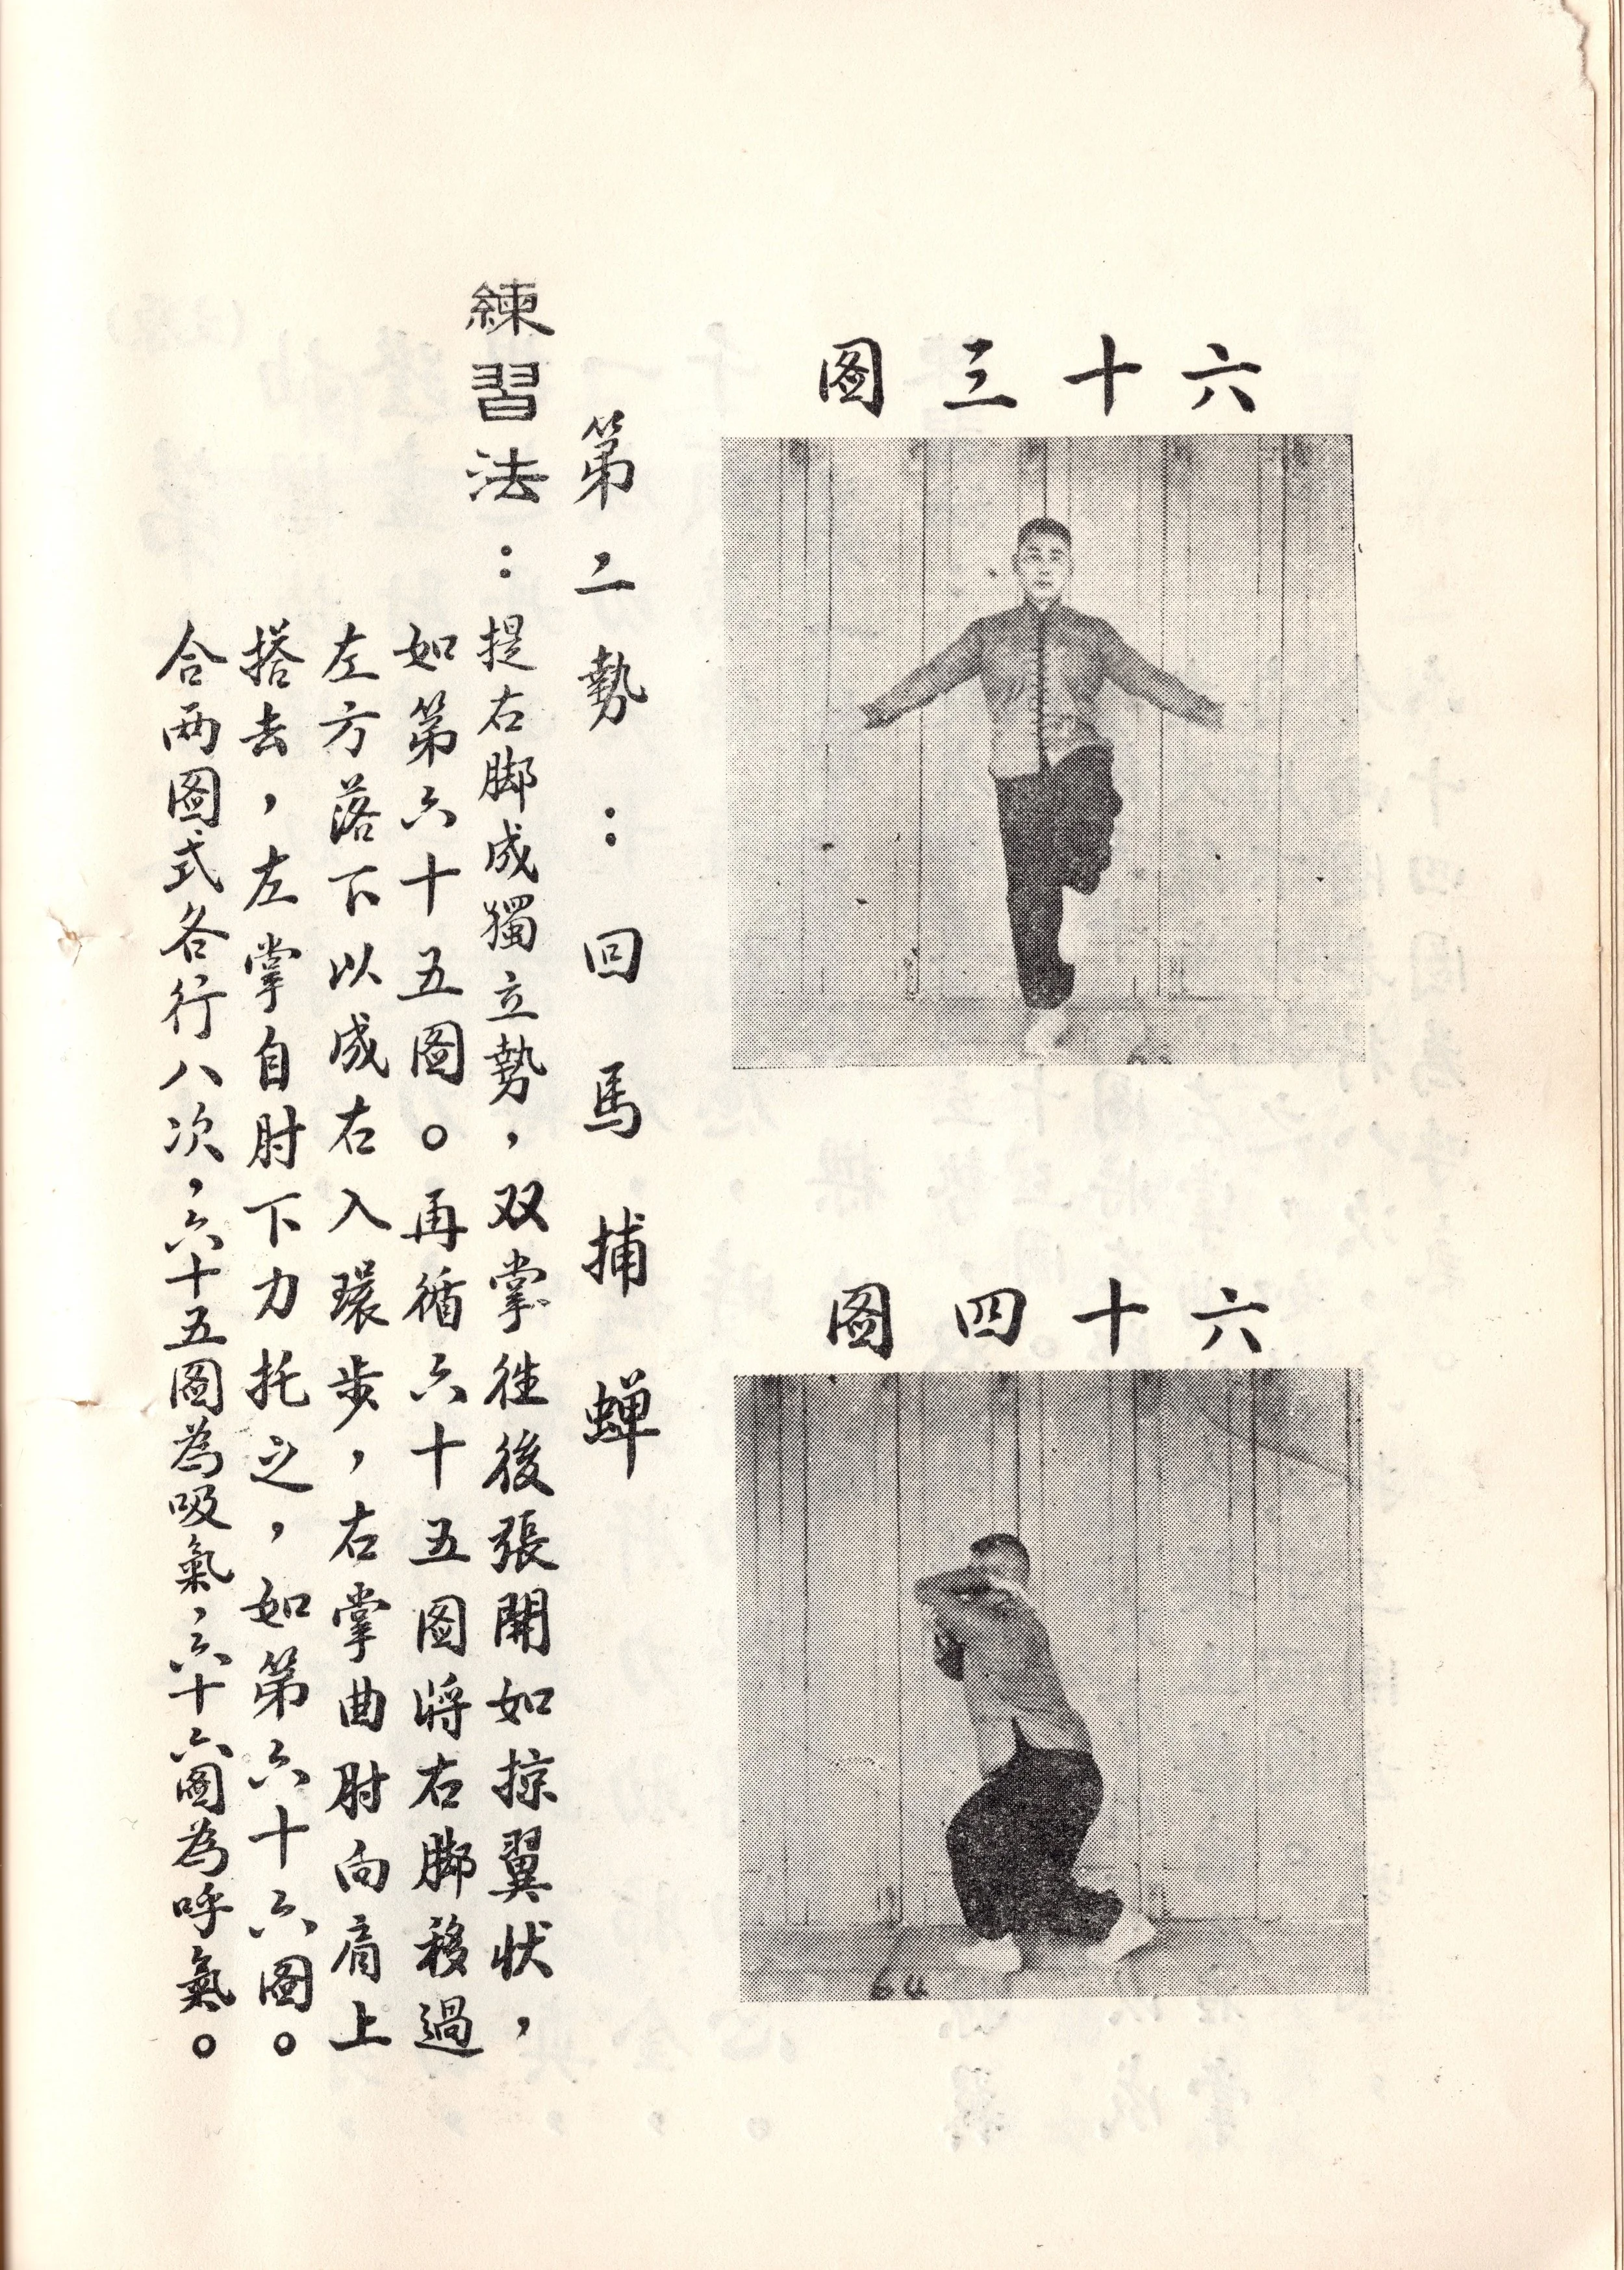 六十三圖
六十四圖
64
第二勢：回馬捕蟬
練習法：提右脚成獨立勢，双掌徃後張開如掠翼状，
如第六十五圖。再循六十五图將右脚移過
左方落下以成右入環步，右掌曲肘向肩上
搭去，左掌自肘下力托之，如第六十六圖。
合两圖式各行八次，六十五圖為吸氣，六十六圖為呼氣。